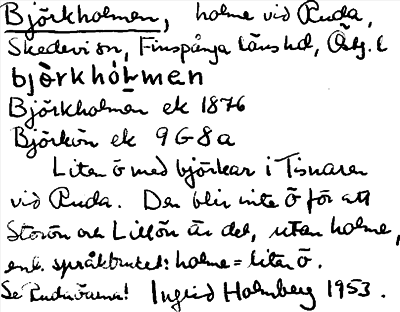 Björkholmen, holme vid Ruda,
Skedevi sn, Finspånga läns hd, Östg. l
björkhól̀men
Björkholmen ek 1876
Björkön ek 9G8a
Liten ö med björkar i Tisnaren
vid Ruda. Den blir inte ö för att
Storön och Lillön är det, utan holme,
enl. språkbruket: holme = liten ö.
Se Rudaöarna! Ingrid Holmberg 1953.